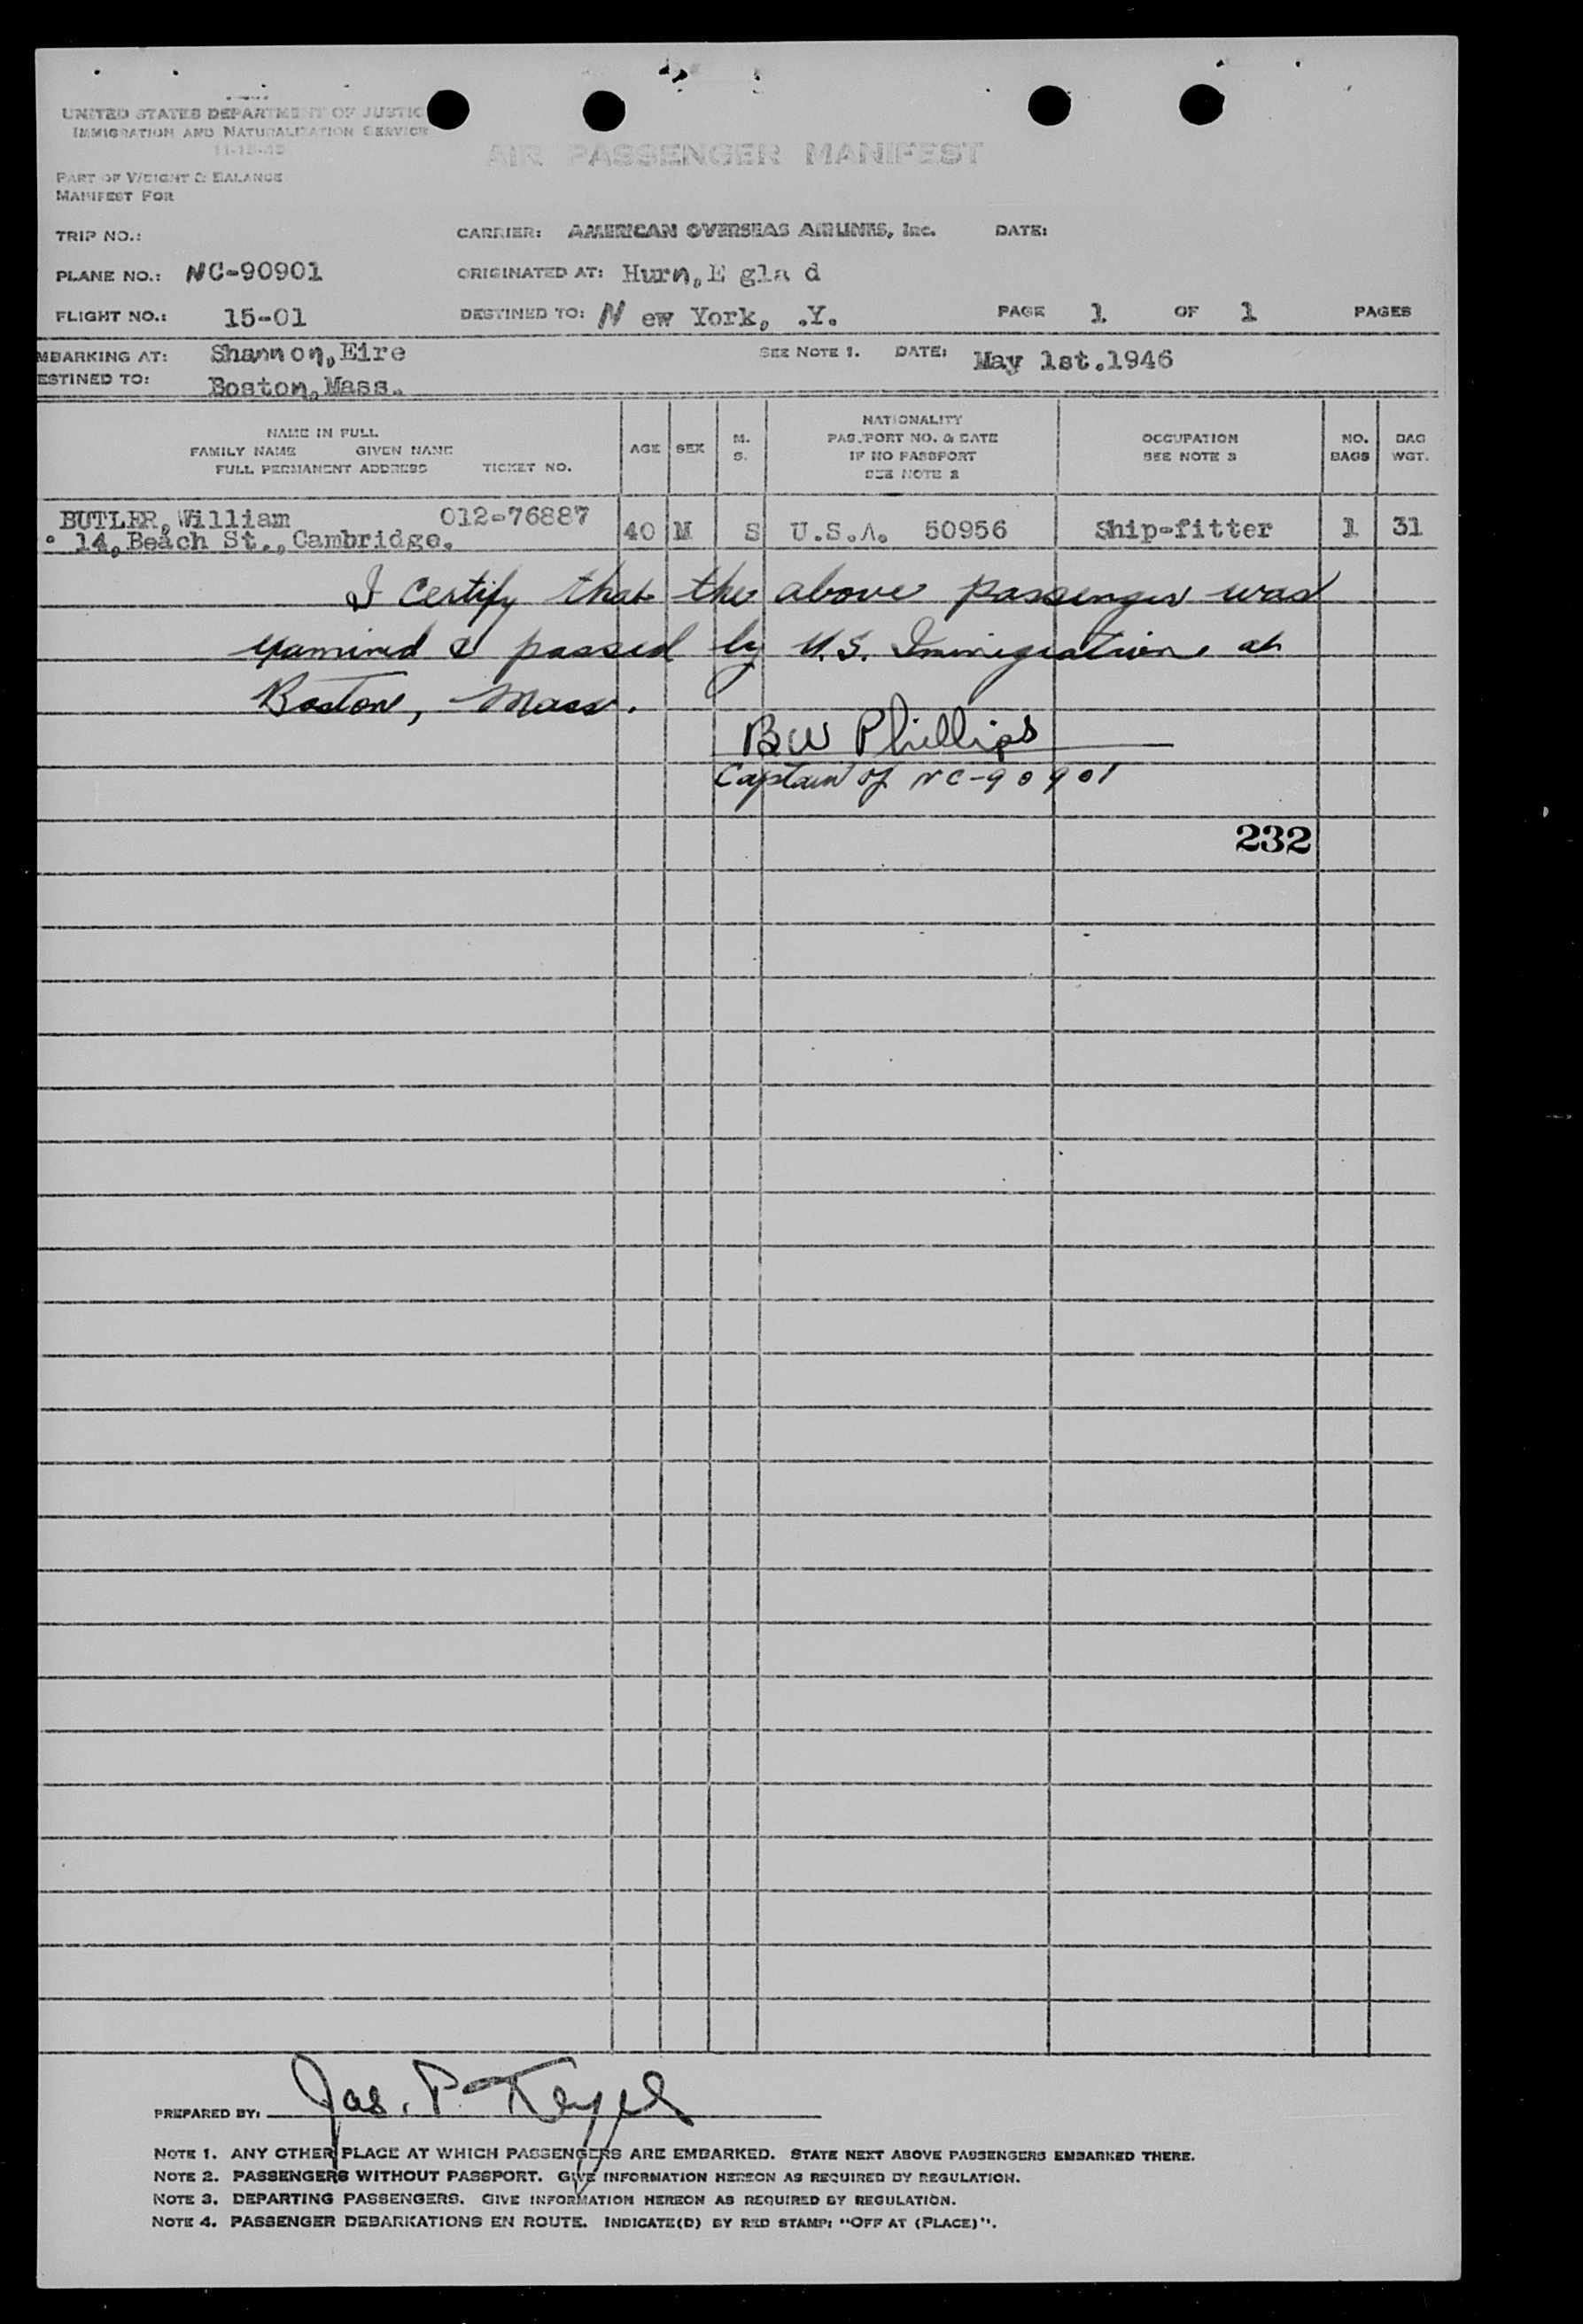 UNITED STATES DEPARTMENT OF JUSTIC
IMMIGRATION AND NATURALIZATION SERVICE
AIR PASSENGER MANIFEST
PART OF WEIGHT & BALANCE
MANIFEST FOR
TRIP NO.: CARRIER: AMERICAN OVERSEAS AIRLINES, Inc. DATE:
PLANE NO.: NC-90901 ORIGINATED AT: Hurn,E gla d
FLIGHT NO.: 15-01 DESTINED TO: N ew York, .Y. PAGE 1 OF 1 PAGES
MBARKING AT: Shannon,Eire SEE NOTE 1. DATE: May 1st.1946
ESTINED TO: Boston,Mass.
NAME IN FULL
FAMILY NAME GIVEN NAME
FULL PERMANENT ADDRESS TICKET NO.
AGE
SEX
M.
S.
NATIONALITY
PASSPORT NO. & DATE
IF NO PASSPORT
SEE NOTE 2
OCCUPATION
SEE NOTE 3
NO.
BAGS
BAG
WGT.
BUTLER,William 012-76887
14,Beach St.,Cambridge. 40 M S U.S.A. 50956 Ship-fitter 1 31
I certify that the above passenger was
examined & passed by U.S. Immigration at
Boston, Mass.
BW Phillips
Captain of NC-90901
232
PREPARED BY: Jas. P. Keyes
NOTE 1. ANY OTHER PLACE AT WHICH PASSENGERS ARE EMBARKED. STATE NEXT ABOVE PASSENGERS EMBARKED THERE.
NOTE 2. PASSENGERS WITHOUT PASSPORT. GIVE INFORMATION HEREON AS REQUIRED BY REGULATION.
NOTE 3. DEPARTING PASSENGERS. GIVE INFORMATION HEREON AS REQUIRED BY REGULATION.
NOTE 4. PASSENGER DEBARKATIONS EN ROUTE. INDICATE(D) BY RED STAMP: "OFF AT (PLACE)".